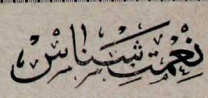 نِعْمَتْ شَنَاسْ